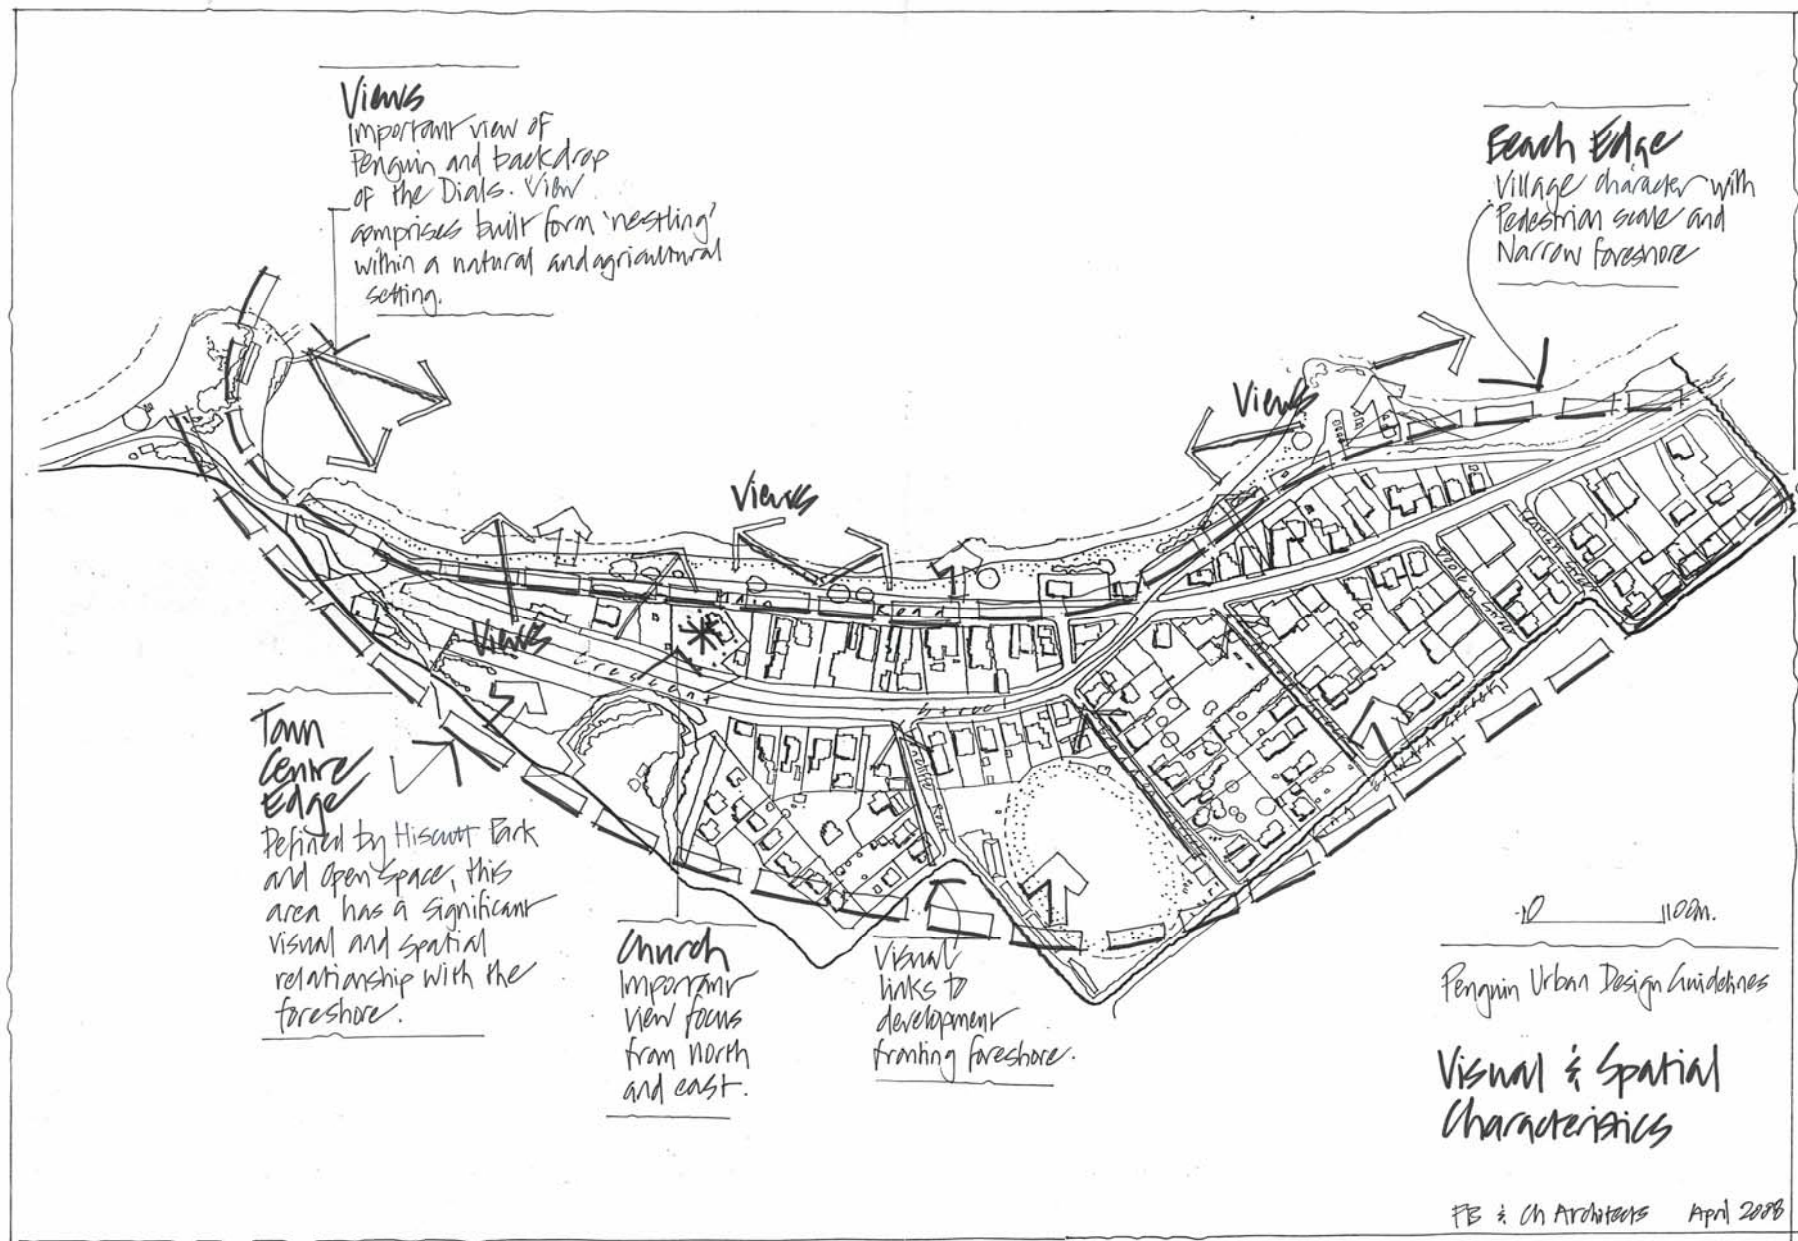 Views
Important view of
Penguin and backdrop
of the Dials. View
comprises built form 'nestling'
within a natural and agricultural
setting.
Beach Edge
Village character with
Pedestrian scale and
Narrow foreshore
Views
Views
Main Road
Views
Crescent Street
Town
Centre
Edge
Defined by Hiscutt Park
and open space, this
area has a significant
visual and spatial
relationship with the
foreshore.
Church
Important
view focus
from north
and east.
Visual
links to
development
fronting foreshore.
0 100m.
Penguin Urban Design Guidelines
Visual & Spatial
Characteristics
FB & Ch Architects April 2008